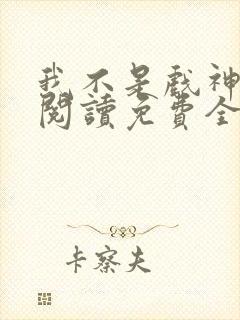 我不是戲神
閱讀免費全
卡察夫